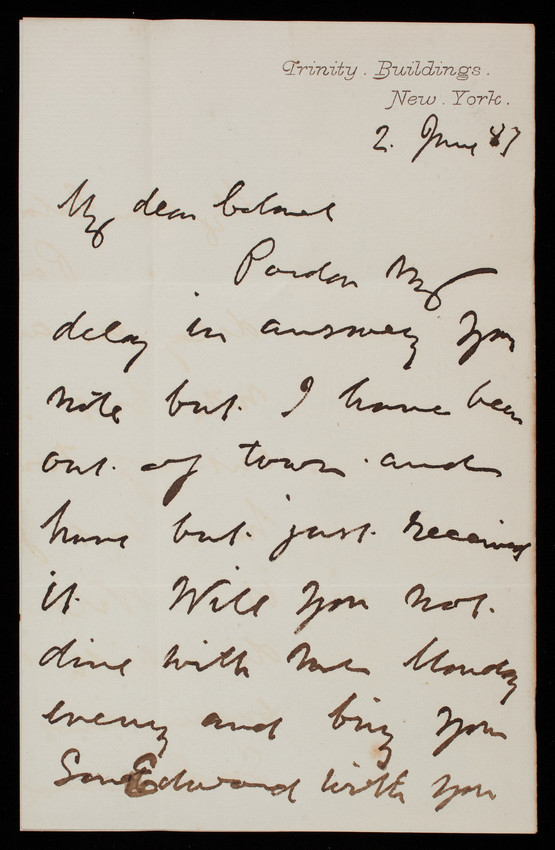 Trinity . Buildings .
New . York .
2. June 87
My dear Colonel
Pardon My
delay in answering your
note but. I have been
out. of town. and
have but. just. received
it. Will you not.
dine with me Monday
evening and bring your
Son Edward with you